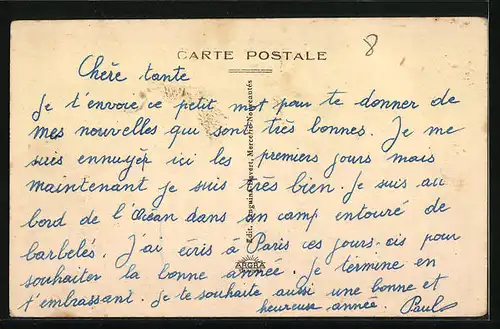 CARTE POSTALE
8
Chère tante
Je t'envoie ce petit mot pour te donner de
mes nouvelles qui sont très bonnes. Je me
suis ennuyé ici les premiers jours mais
maintenant je suis très bien. Je suis au
bord de l'Océan dans un camp entouré de
barbelés. J'ai écris à Paris ces jours-cis pour
souhaiter la bonne année. Je termine en
t'embrassant. Je te souhaite aussi une bonne et
heureuse année. Paul
Edit. Mercerie-Nouveautés